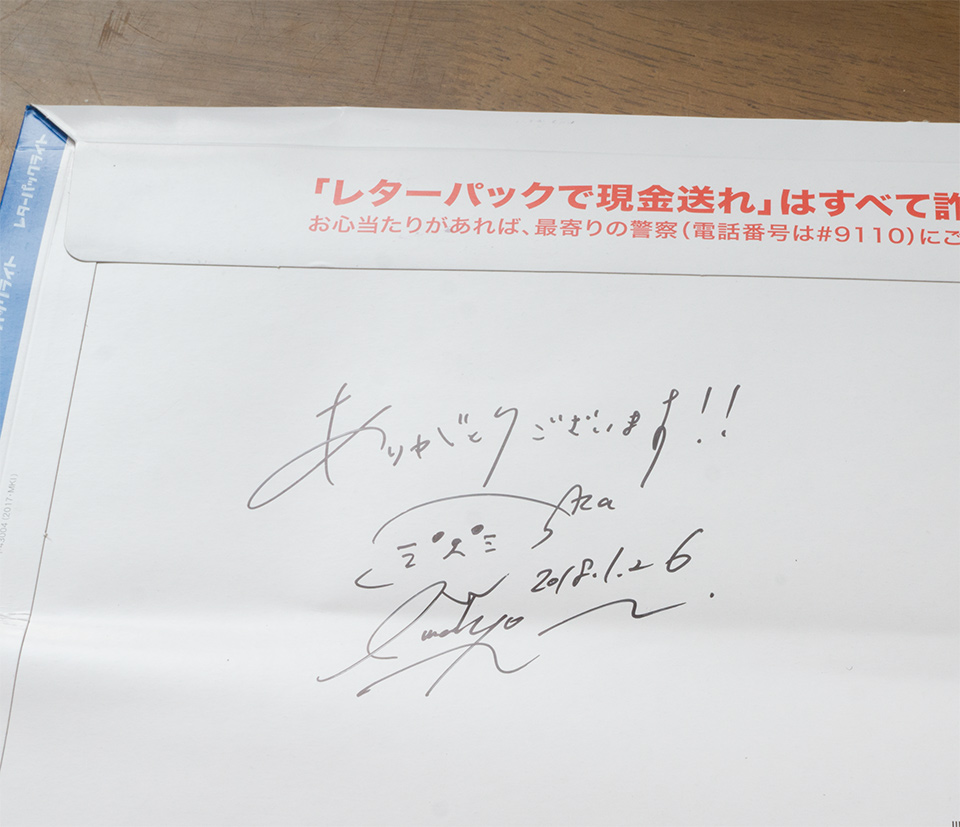 「レターパックで現金送れ」はすべて詐
お心当たりがあれば、最寄りの警察(電話番号は#9110)にご
レターパックライト
ありがとうございます!!
2018.1.26